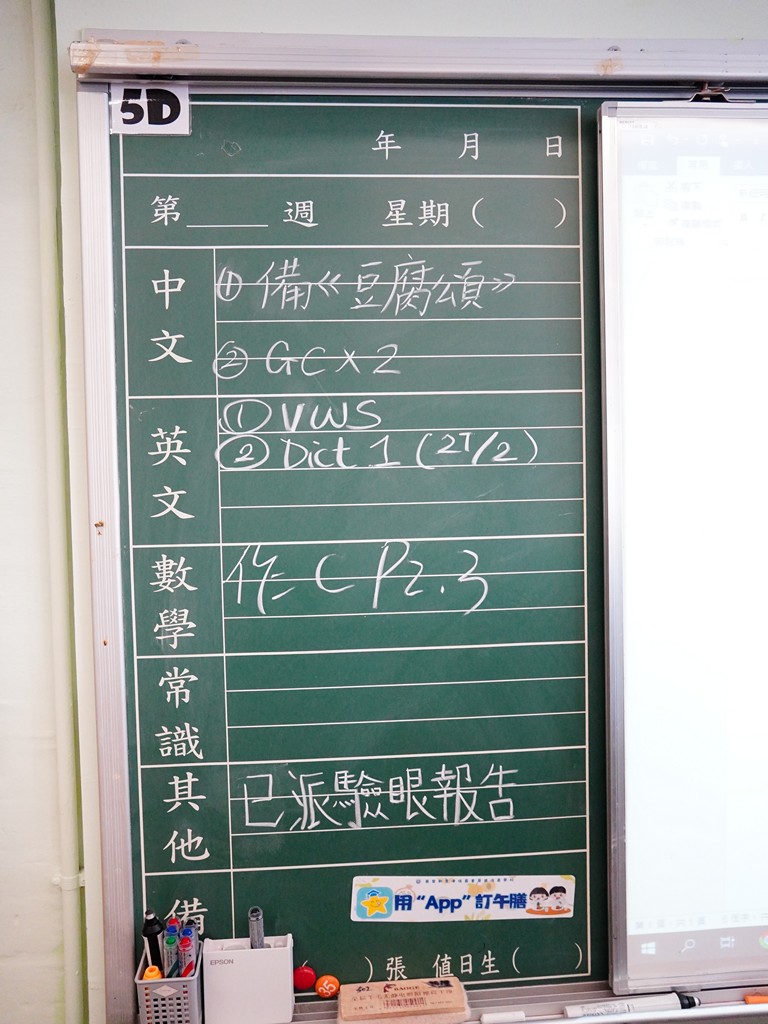 5D
年 月 日
第____週 星期( )
中文
① 備《豆腐頌》
② GC x 2
英文
① VWS
② Dict 1 (27/2)
數學
作 C P2.3
常識
其他
已派驗眼報告
備
用“App”訂午膳
EPSON
)張 值日生( )